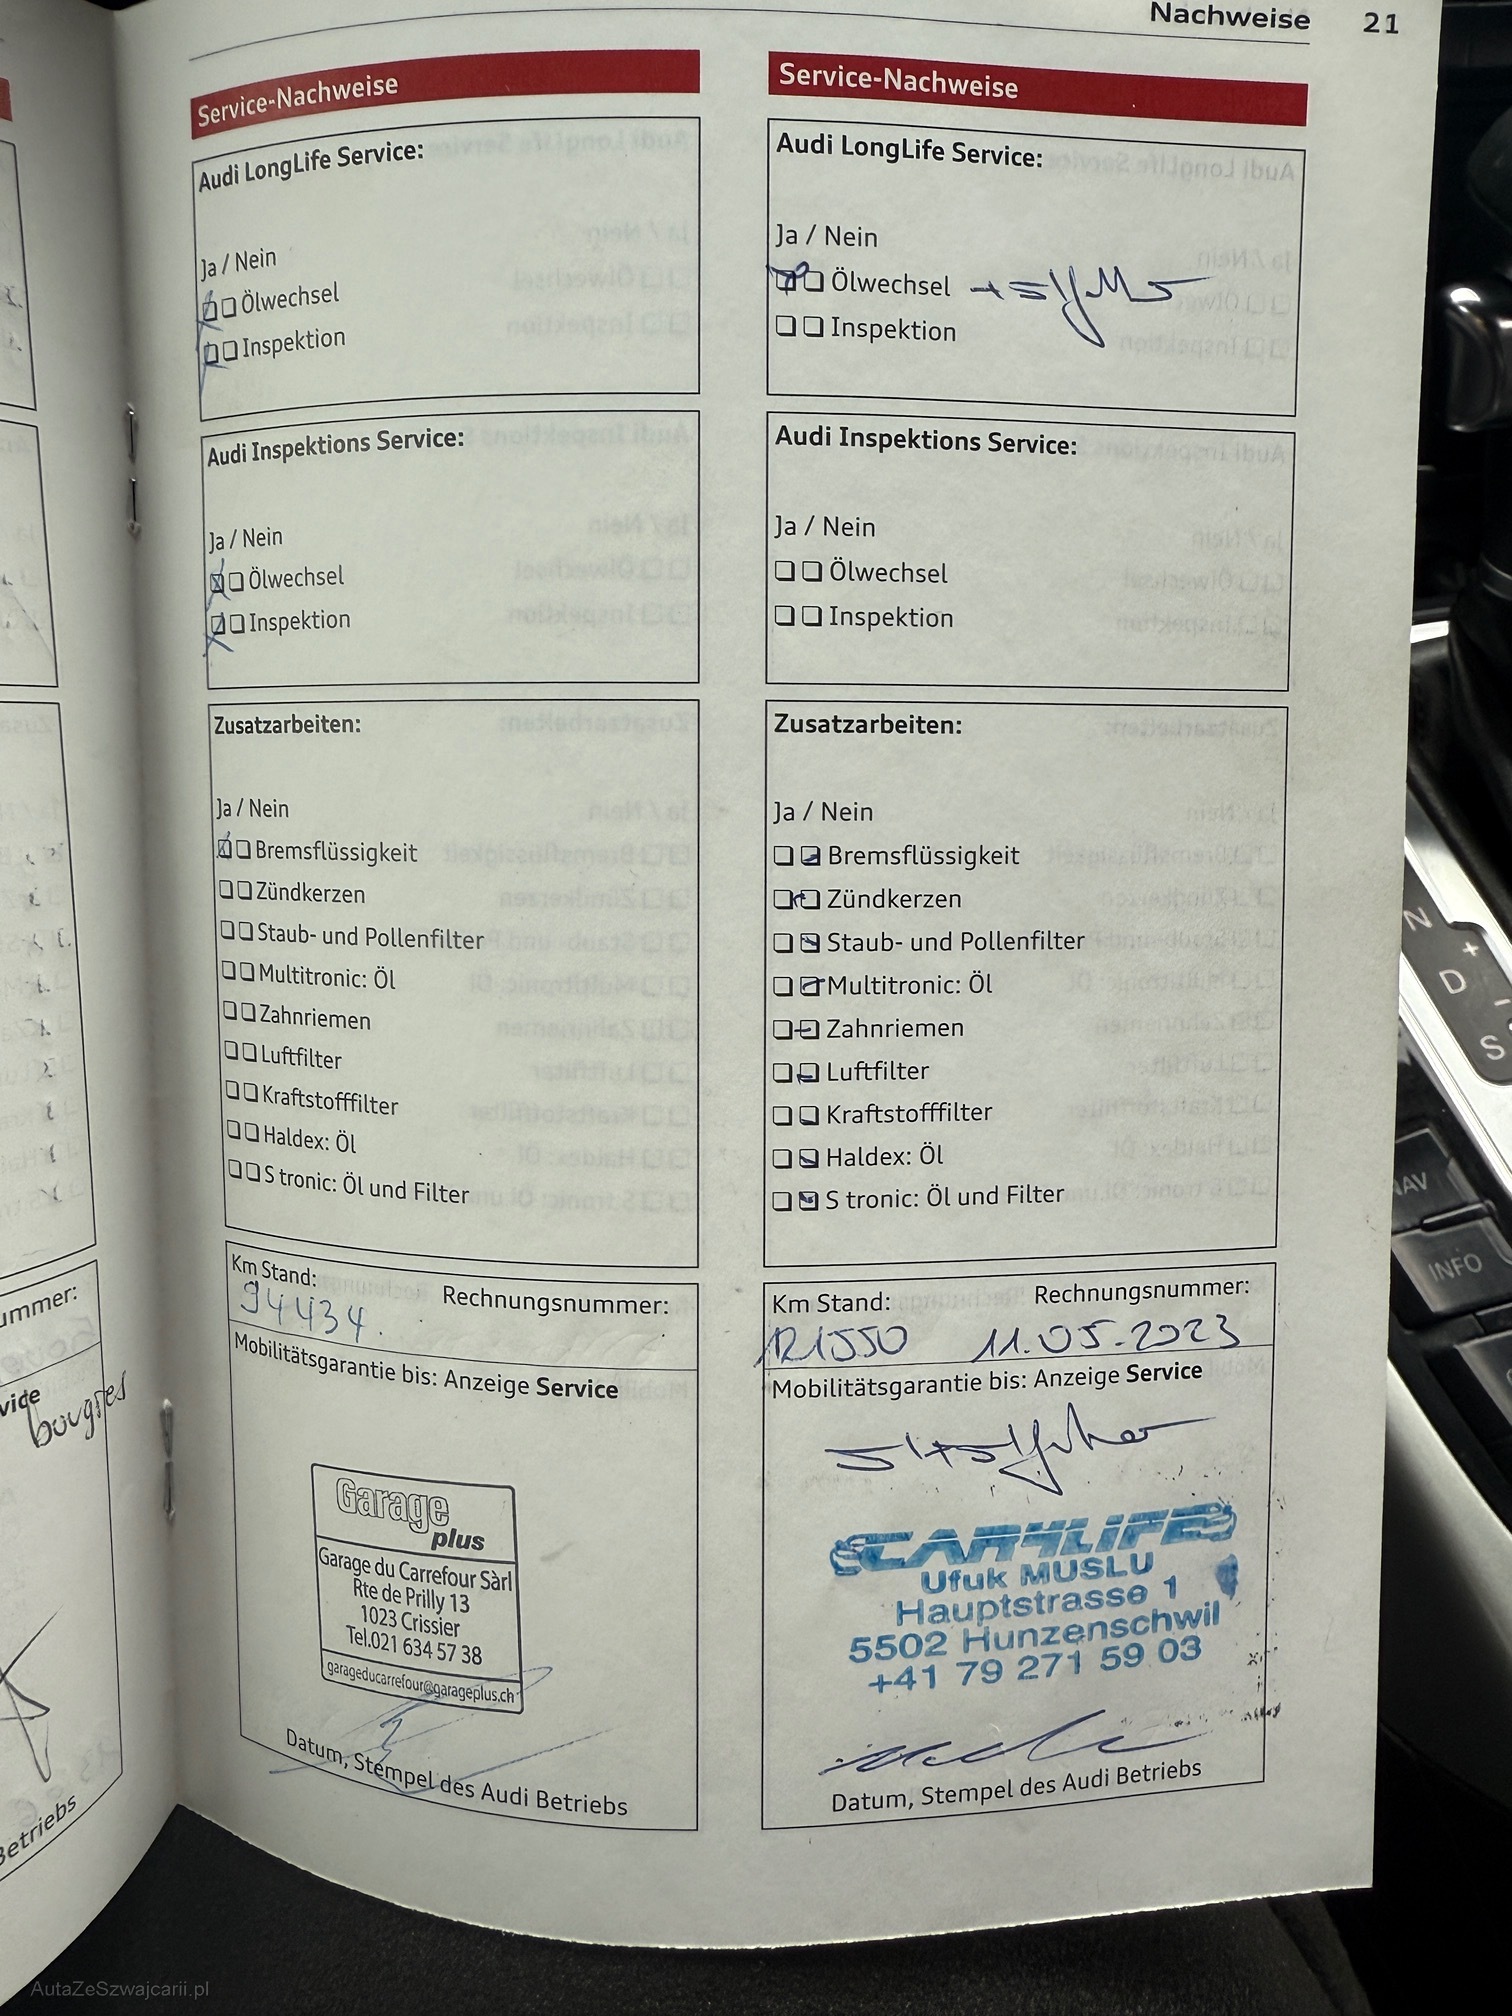 Nachweise 21
Service-Nachweise
Audi LongLife Service:
Ja / Nein
Ölwechsel
Inspektion
Audi Inspektions Service:
Ja / Nein
Ölwechsel
Inspektion
Zusatzarbeiten:
Ja / Nein
Bremsflüssigkeit
Zündkerzen
Staub- und Pollenfilter
Multitronic: Öl
Zahnriemen
Luftfilter
Kraftstofffilter
Haldex: Öl
S tronic: Öl und Filter
Km Stand: Rechnungsnummer:
94434.
Mobilitätsgarantie bis: Anzeige Service
Garage
plus
Garage du Carrefour Sàrl
Rte de Prilly 13
1023 Crissier
Tel.021 634 57 38
garageducarrefour@garageplus.ch
Datum, Stempel des Audi Betriebs
Service-Nachweise
Audi LongLife Service:
Ja / Nein
Ölwechsel
Inspektion
Audi Inspektions Service:
Ja / Nein
Ölwechsel
Inspektion
Zusatzarbeiten:
Ja / Nein
Bremsflüssigkeit
Zündkerzen
Staub- und Pollenfilter
Multitronic: Öl
Zahnriemen
Luftfilter
Kraftstofffilter
Haldex: Öl
S tronic: Öl und Filter
Km Stand: Rechnungsnummer:
121550 11.05.2023
Mobilitätsgarantie bis: Anzeige Service
CAR4LIFE
Ufuk MUSLU
Hauptstrasse 1
5502 Hunzenschwil
+41 79 271 59 03
Datum, Stempel des Audi Betriebs
ummer:
vice
bougies
Betriebs
N
+
D
-
S
NAV
INFO
AutaZeSzwajcarii.pl